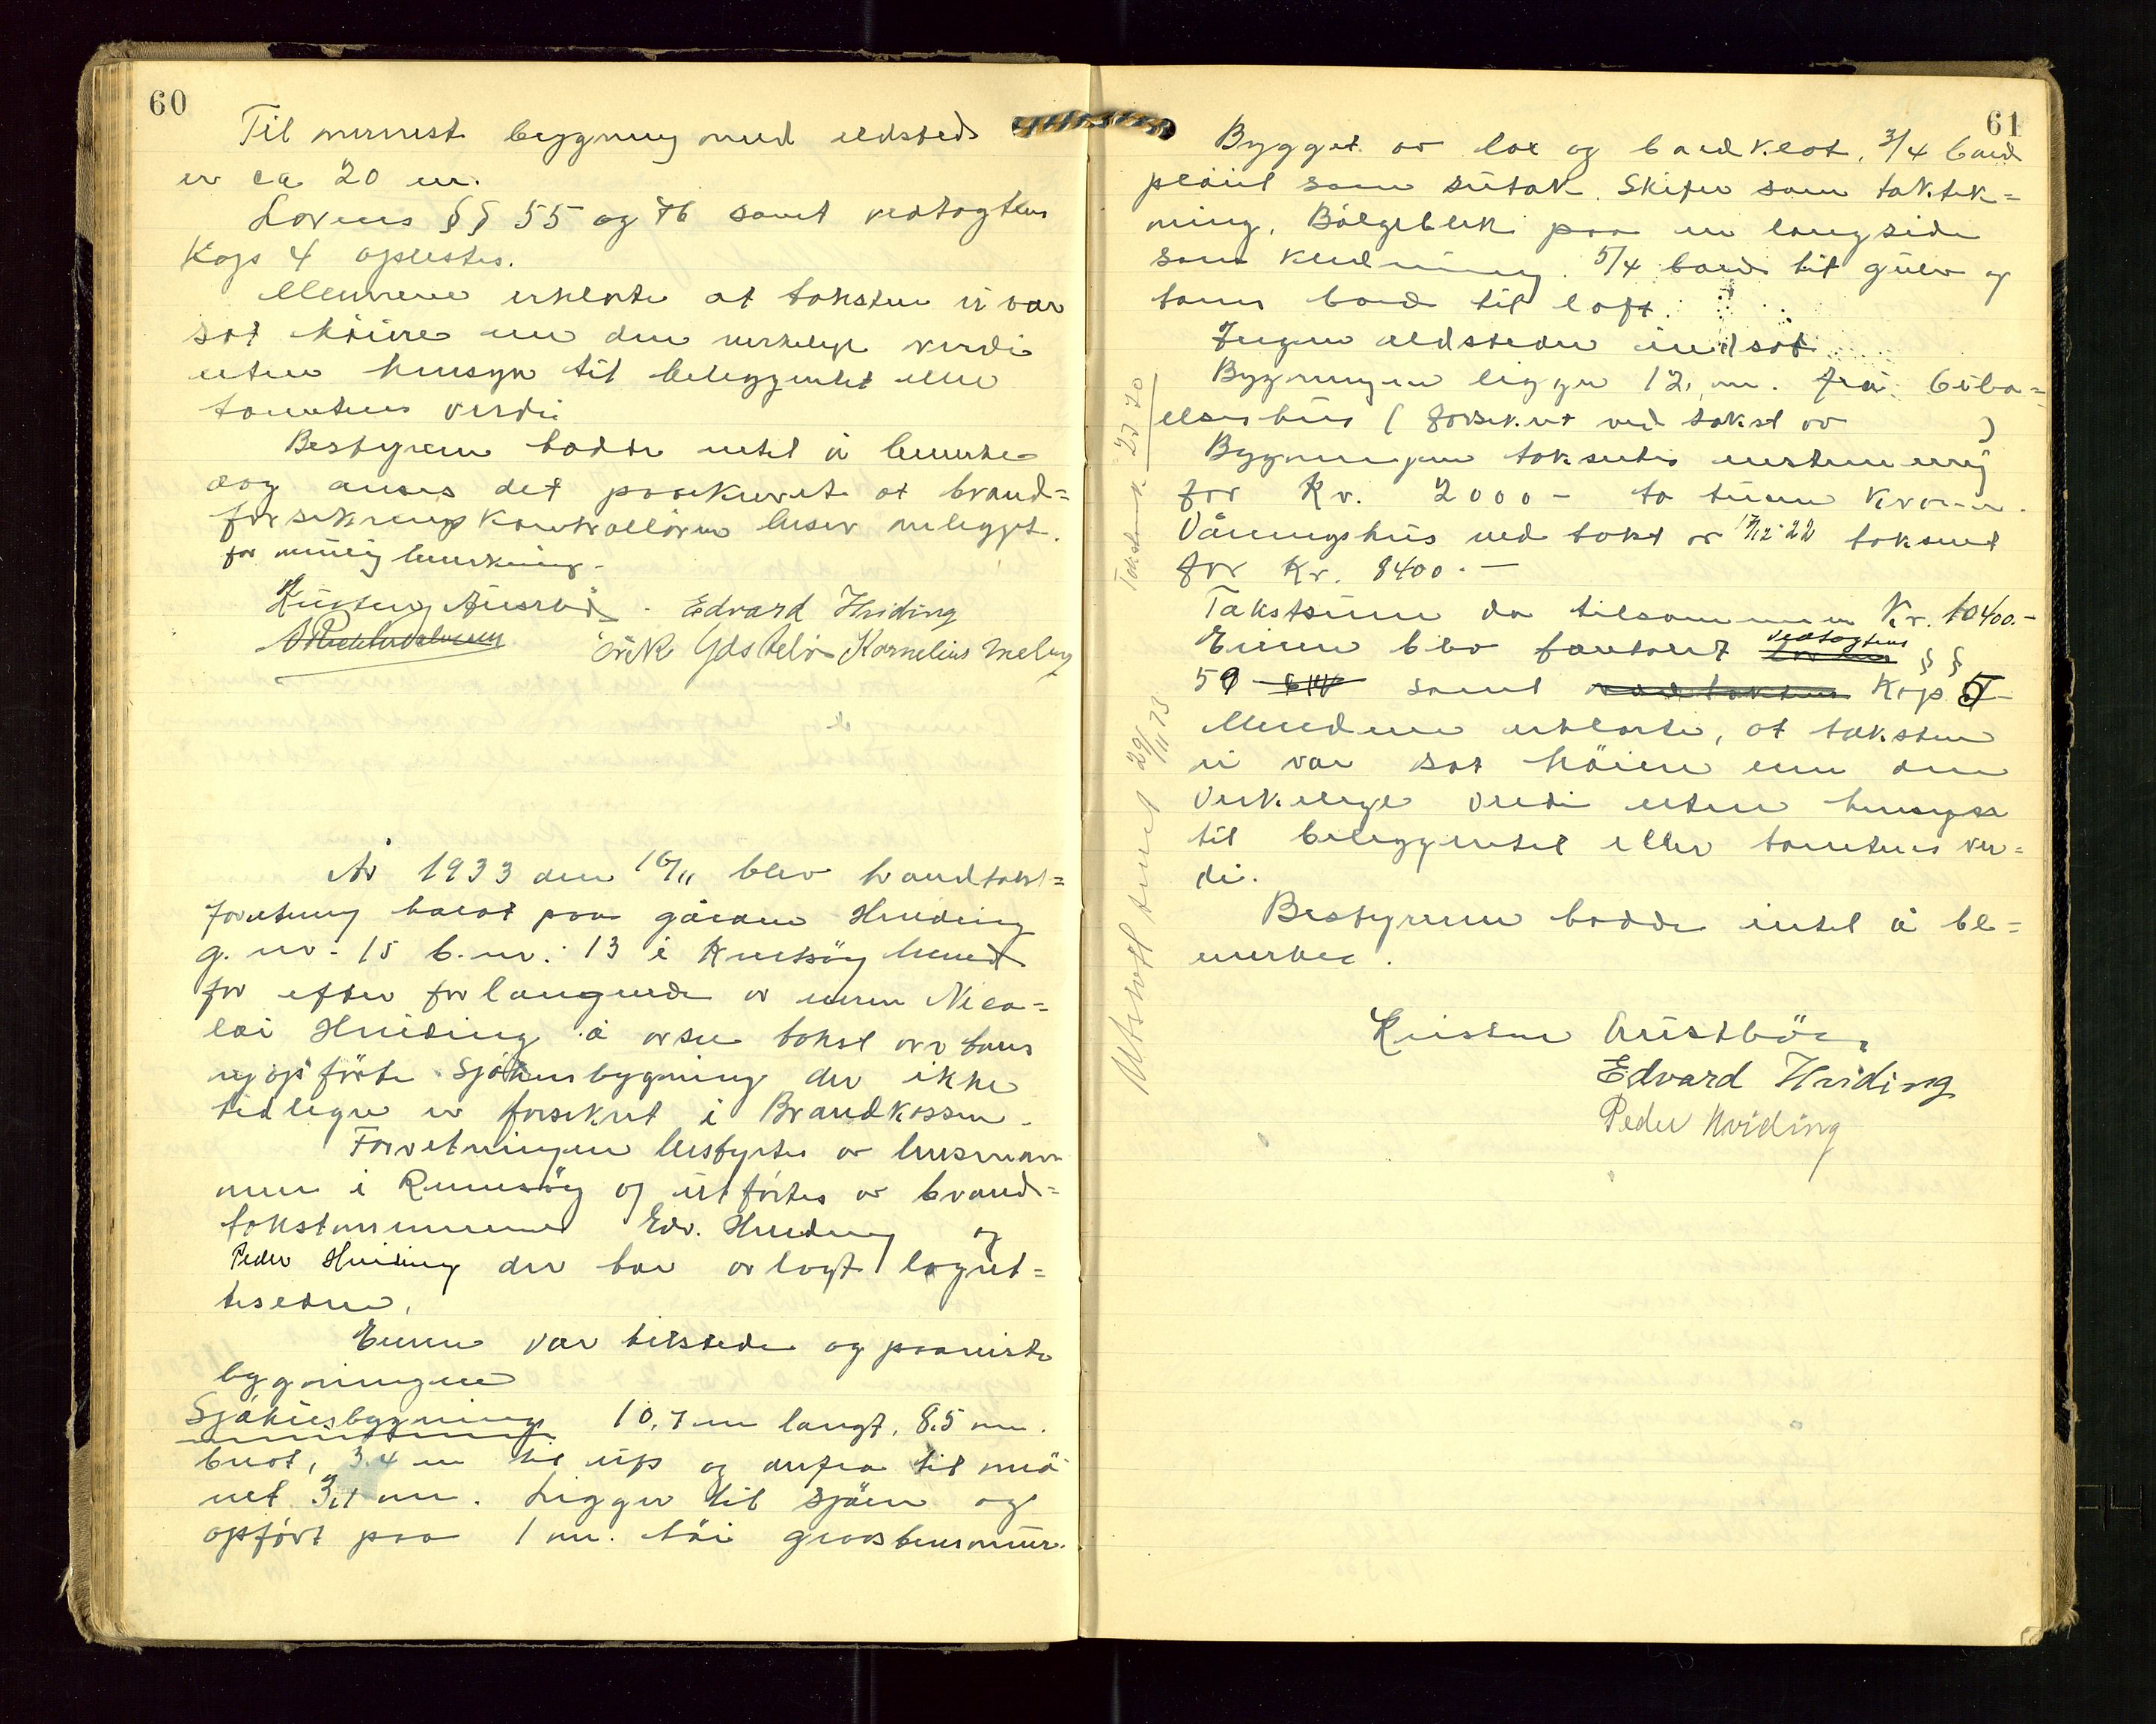 60
Til nærmest bygning med ildsteds
er ca 20 m.
Lovens §§ 55 og 76 samt vedtogtens
Kap 4 oplestes.
Mennene erklærte at taksten ei var
sat höiere enn den virkelige verdi
uten hensyn til beliggenhet eller
tomtens verdi
Bestyreren hadde intet å bemerke
dog anses det paakrevet at brand=
forsikringskontrolløren blir velagt.
for mulig bemerkning.
Edvard Hviding
Erik Ydstebø Kornelius Meling
År 1933 den 16/11 blev brandtakst=
forretning holdt paa gården Hviding
g. nr. 15 b.nr. 13 i Rennesöy herred
for efter forlangende av eieren Nico=
lai Hviding å avsee takst over hans
nyopförte Sjøhusbygning der ikke
tidligere er forsikret i Brandkassen.
Forretningen bestyrtes av lensman
nen i Rennesöy og utförtes av brand=
takstmennene Edv. Hviding og
Peder Hviding der har avlagt lagret=
teseden.
Eieren var tilstede og paaviste
bygningen
Sjøhusbygning 10,7 m langt, 8,5 m.
bredt, 3.4 m til ups og derfra til mö
net 3,1 m. Ligger til sjøen og
opfört paa 1 m. höi graastensmur.
61
Bygget av lax og bordkledt. 3/4 bord
pløiet som sutak. Skifer som taktek=
ning. Bölgeblik paa en langside
som kledning. 5/4 bord til gulv og
toms bord til loft.
Ingen ildsteder indsat
Bygningen ligger 12 m. fra bebo=
elseshus (forsikret ved takst av )
Bygningen takseredes enstemmig
for Kr. 2000 - to tusen kroner.
Våningshus ved takst av 17/12-22 taksert
for Kr. 8400.-
Takstsum da tilsammen Kr. 10400.-
Eieren blev foreholdt vedtogtens §§
59 samt Kap. 5
Mendene erklærte, at taksten
ei var sat höiere enn den
virkelige verdi uten hensyn
til beliggenhet eller tomtens ver=
di.
Bestyreren hadde intet å be=
merke.
Edvard Hviding
Peder Hviding
29/11 73